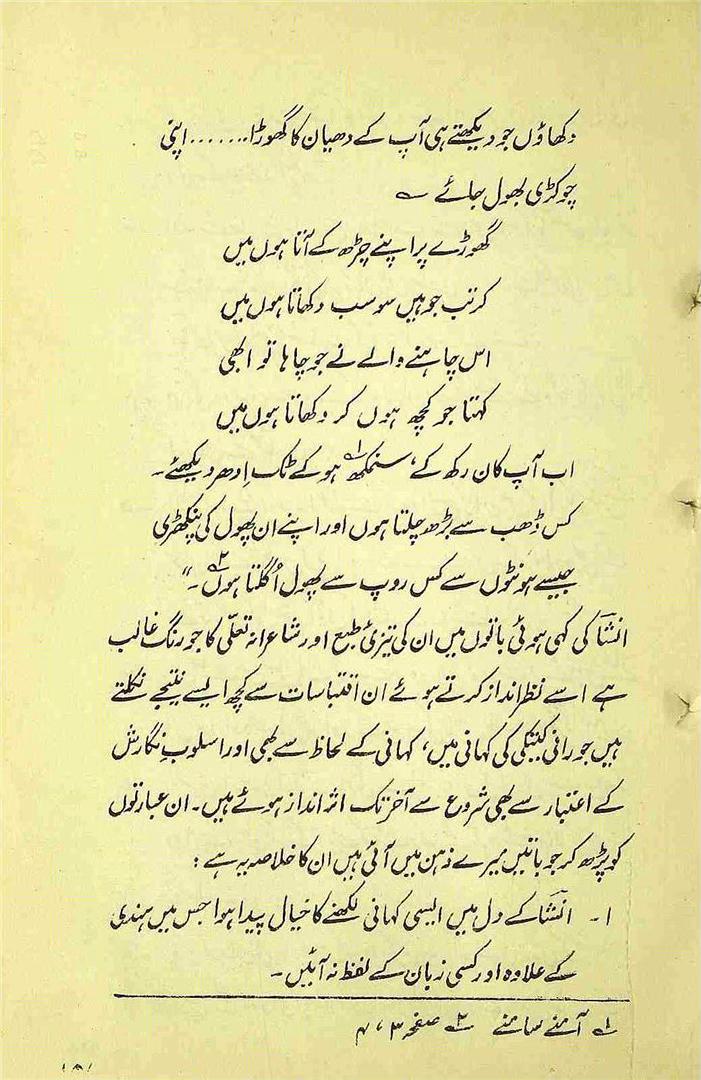 دکھاؤں جو دیکھتے ہی آپ کے دھیان کا گھوڑا....... اپنی
چوکڑی بھول جائے ؎
گھوڑے پر اپنے چڑھ کے آتا ہوں میں
کرتب جو ہیں سو سب دکھاتا ہوں میں
اس چاہنے والے نے جو چاہا تو ابھی
کہتا جو کچھ ہوں کر دکھاتا ہوں میں
اب آپ کان رکھ کے، سنمکھ۱ ہو کے ٹک اِدھر دیکھئے۔
کس ڈھب سے بڑھ چلتا ہوں اور اپنے ان پھول کی پنکھڑی
جیسے ہونٹوں سے کس روپ سے پھول اُگلتا ہوں۲۔"
انشاؔ کی کہی ہوئی باتوں میں ان کی تیزیٔ طبع اور شاعرانہ تعلّی کا جو رنگ غالب
ہے اسے نظر انداز کرتے ہوئے ان اقتباسات سے کچھ ایسے نتیجے نکلتے
ہیں جو رانی کیتکی کی کہانی میں، کہانی کے لحاظ سے بھی اور اسلوبِ نگارش
کے اعتبار سے بھی شروع سے آخر تک اثر انداز ہوئے ہیں۔ ان عبارتوں
کو پڑھ کر جو باتیں میرے ذہن میں آئی ہیں ان کا خلاصہ یہ ہے :
۱۔ انشاؔ کے دل میں ایسی کہانی لکھنے کا خیال پیدا ہوا جس میں ہندی
کے علاوہ اور کسی زبان کے لفظ نہ آئیں۔
۱ آمنے سامنے ۲ صفحہ ۳، ۴